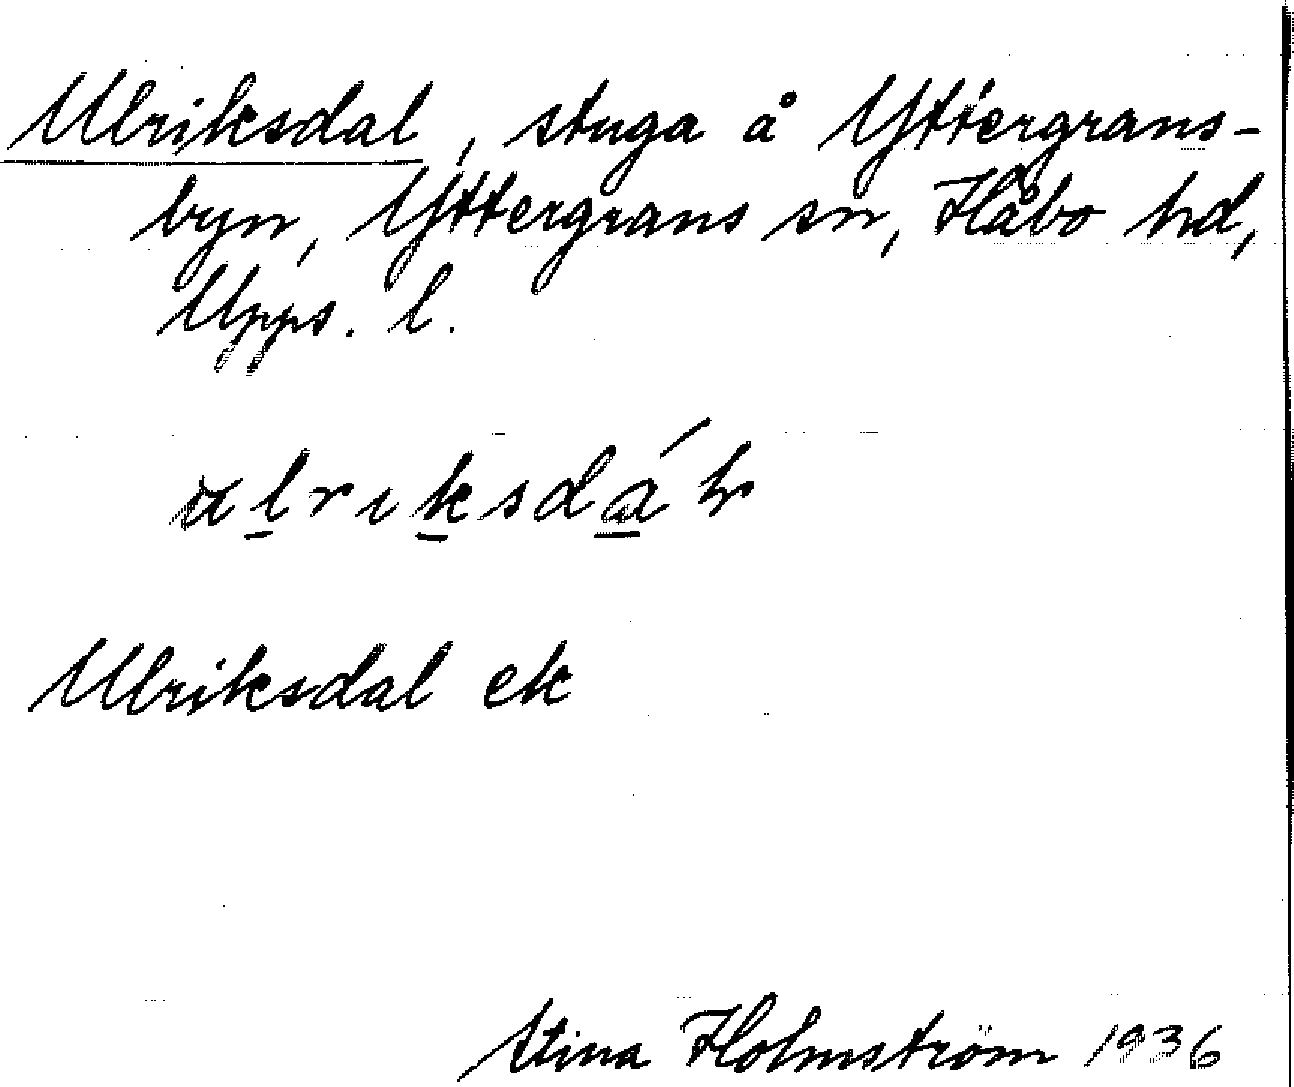 Ulriksdal, stuga å Yttergrans-
byn, Yttergrans sn, Håbo hd,
Upps. l.
Ulriksdal ek
Stina Holmström 1936